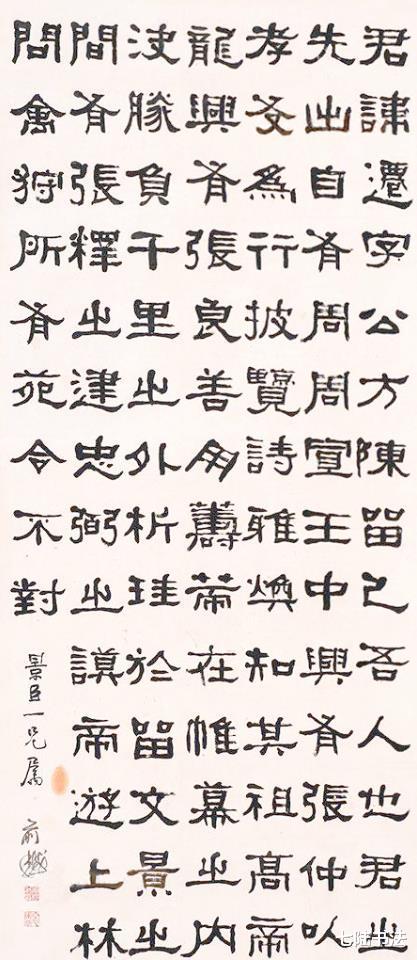 君諱遷字公方陳留己吾人也君之
先出自有周周宣王中興有張仲以
孝友為行披覽詩雅煥知其祖高帝
龍興有張良善用籌策在帷幕之內
決勝負千里之外析珪於留文景之
間有張釋之建忠弼之謨帝遊上林
問禽狩所有苑令不對
景臣一兄属
俞樾
七陆书法